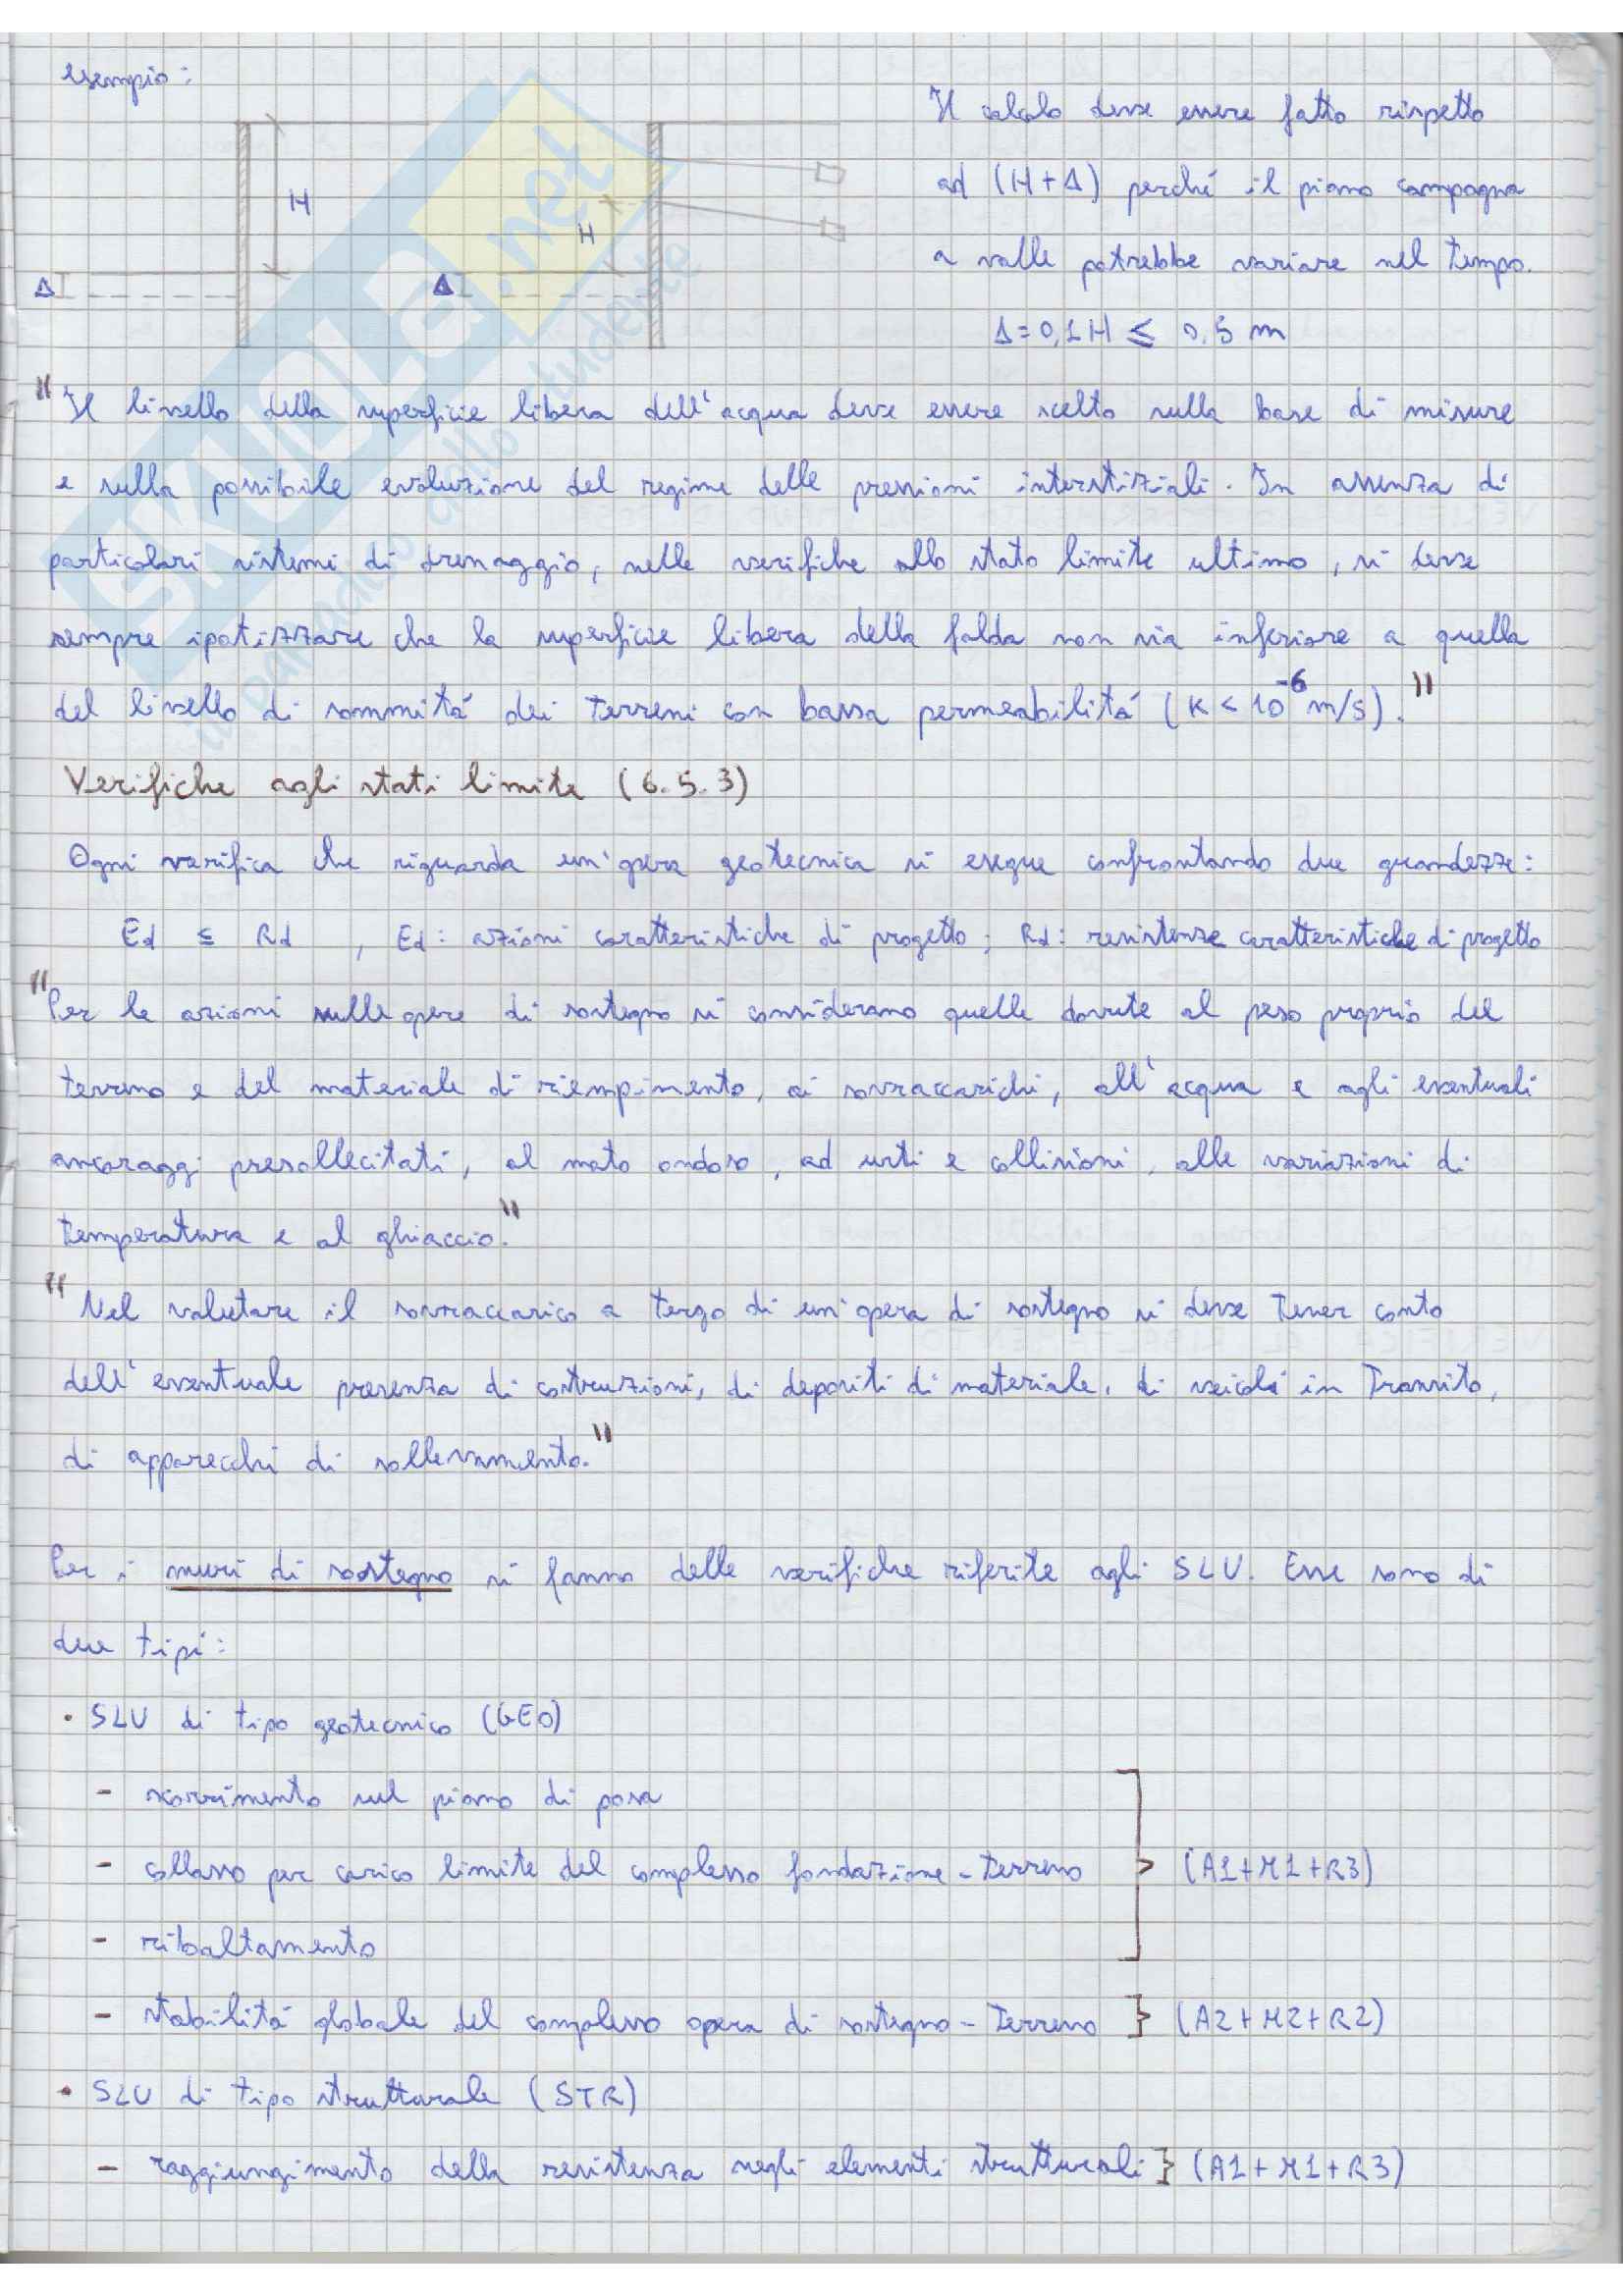 esempio:
Il calcolo deve essere fatto rispetto
ad (H+Δ) perché il piano campagna
a valle potrebbe variare nel tempo.
Δ=0,1H ≤ 0,5 m
H
H
Δ
Δ
SKUOLA.net
il paradiso dello studente
"Il livello della superficie libera dell'acqua deve essere scelto sulla base di misure
e sulla possibile evoluzione del regime delle pressioni interstiziali. In assenza di
particolari sistemi di drenaggio, nelle verifiche allo stato limite ultimo, si deve
sempre ipotizzare che la superficie libera della falda non sia inferiore a quella
del livello di sommitá dei terreni con bassa permeabilitá (K < 10⁻⁶ m/s)."
Verifiche agli stati limite (6.5.3)
Ogni verifica che riguarda un'opera geotecnica si esegue confrontando due grandezze:
Ed ≤ Rd , Ed: azioni caratteristiche di progetto; Rd: resistenze caratteristiche di progetto
"Per le azioni sulle opere di sostegno si considerano quelle dovute al peso proprio del
terreno e del materiale di riempimento, ai sovraccarichi, all'acqua e agli eventuali
ancoraggi presollecitati, al moto ondoso, ad urti e collisioni, alle variazioni di
temperatura e al ghiaccio."
"Nel valutare il sovraccarico a tergo di un'opera di sostegno si deve tener conto
dell'eventuale presenza di costruzioni, di depositi di materiale, di veicoli in transito,
di apparecchi di sollevamento."
Per i muri di sostegno si fanno delle verifiche riferite agli SLU. Esse sono di
due tipi:
• SLU di tipo geotecnico (GEO)
- scorrimento sul piano di posa
- collasso per carico limite del complesso fondazione-terreno } (A1+M1+R3)
- ribaltamento
- stabilitá globale del complesso opera di sostegno-terreno } (A2+M2+R2)
• SLU di tipo strutturale (STR)
- raggiungimento della resistenza negli elementi strutturali } (A1+M1+R3)